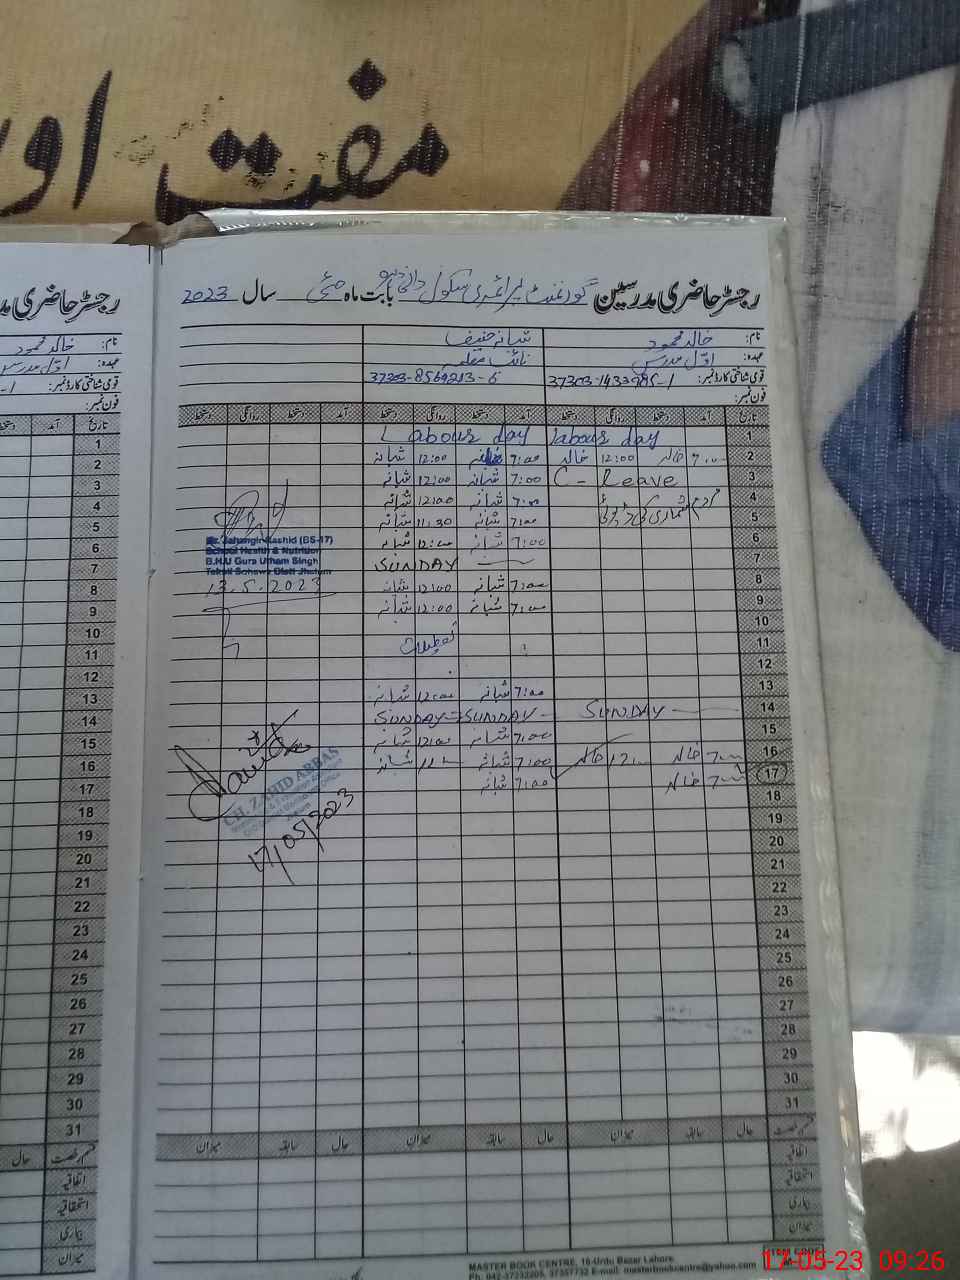 مفت اور
رجسٹر حاضری مدرسین گورنمنٹ پرائمری سکول بابت ماہ مئی سال 2023
نام: خالد محمود شبانہ حنیف
عہدہ: اول مدرس
قومی شناختی کارڈ نمبر: 37303-8569213-6
فون نمبر:
تاریخ آمد دستخط روانگی دستخط آمد دستخط روانگی دستخط آمد دستخط روانگی دستخط
1 Labour day Labour day
2 7:00 خالد 12:00 خالد 7:00 شبانہ 12:00 شبانہ
3 C-Leave 7:00 شبانہ 12:00 شبانہ
4 7:00 شبانہ 12:00 شبانہ
5 مردم شماری کی ڈیوٹی 7:00 شبانہ 11:30 شبانہ
6 7:00 شبانہ 12:00 شبانہ
7 SUNDAY
8 7:00 شبانہ 12:00 شبانہ
9 7:00 شبانہ 12:00 شبانہ
10
11 تعطیلات
12
13 7:00 شبانہ 12:00 شبانہ
14 SUNDAY SUNDAY SUNDAY
15 7:00 شبانہ 12:00 شبانہ
16 7:00 خالد 12:00 خالد 7:00 شبانہ شبانہ
17 7:00 خالد 7:00 شبانہ
18
19
20
21
22
23
24
25
26
27
28
29
30
31
Mr. Jahangir Rashid (BS-17)
School Health & Nutrition
B.H.U Gura Uttam Singh
Tehsil Sohawa Distt Jhelum
13.5.2023
CH. ZAHID ABBAS
17/05/2023
قسم رخصت حال سابقہ میزان حال سابقہ میزان حال سابقہ میزان
اتفاقیہ
استحقاقیہ
بیماری
میزان
MASTER BOOK CENTRE, 16-Urdu Bazar Lahore.
Ph: 042-37232205, 37357732 E-mail: masterbookcentre@yahoo.com
ITEM CODE
رجسٹر حاضری مد
نام: خالد محمود
عہدہ: اول مدرس
قومی شناختی کارڈ نمبر:
فون نمبر:
تاریخ آمد دستخط
1
2
3
4
5
6
7
8
9
10
11
12
13
14
15
16
17
18
19
20
21
22
23
24
25
26
27
28
29
30
31
قسم رخصت حال
اتفاقیہ
استحقاقیہ
بیماری
میزان
17-05-23 09:26